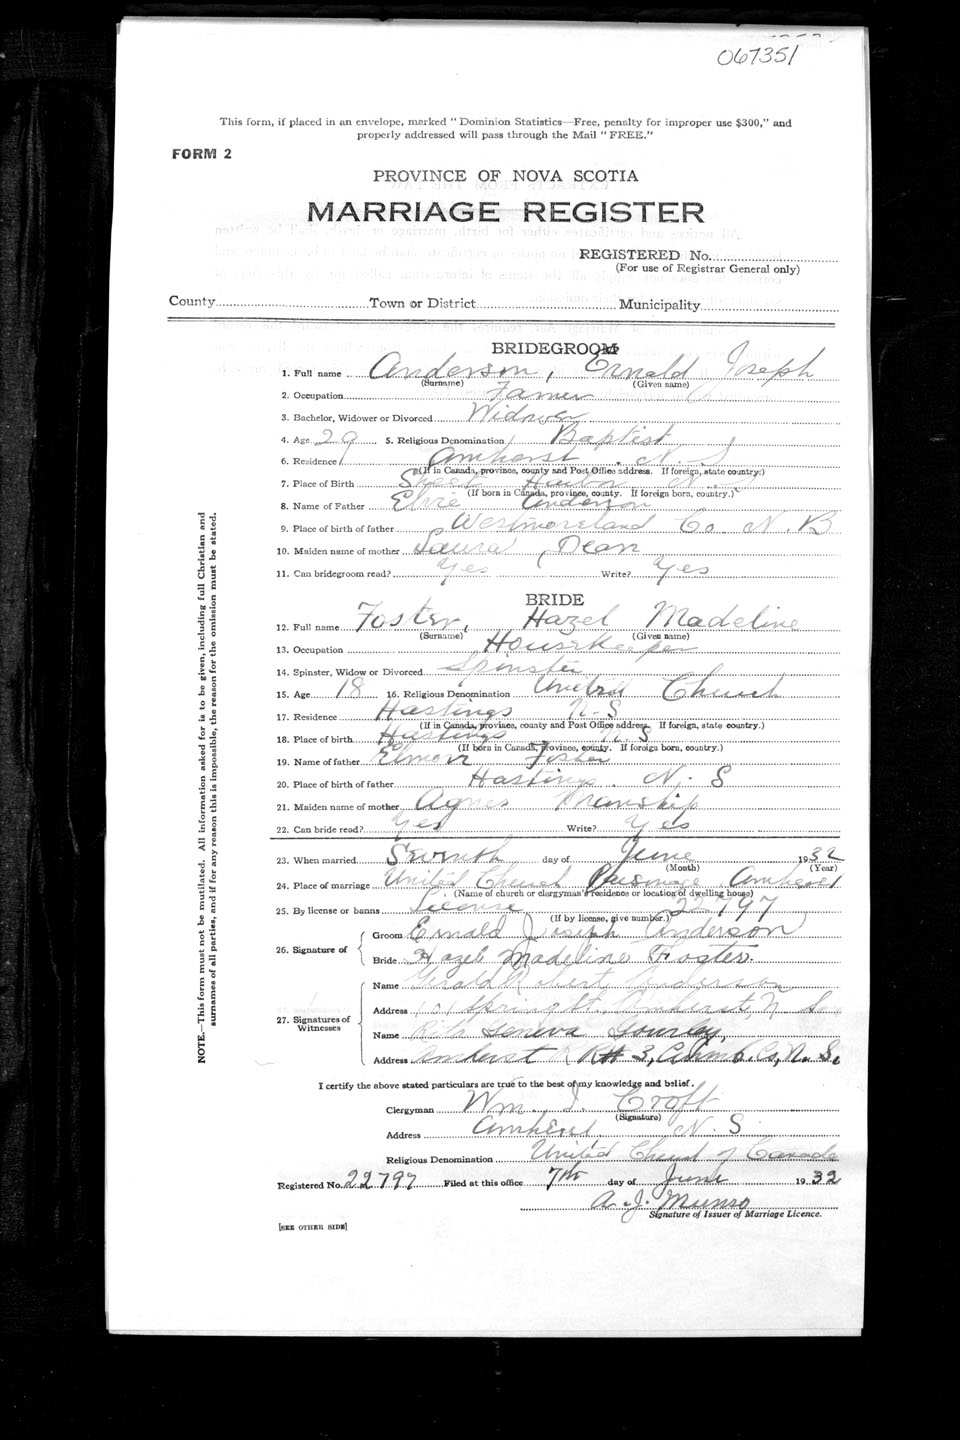 067351
This form, if placed in an envelope, marked "Dominion Statistics—Free, penalty for improper use $300," and
properly addressed will pass through the Mail "FREE."
FORM 2
PROVINCE OF NOVA SCOTIA
MARRIAGE REGISTER
REGISTERED No.
(For use of Registrar General only)
County Town or District Municipality
BRIDEGROOM
1. Full name Anderson, Ernald Joseph
(Surname) (Given name)
2. Occupation Farmer
3. Bachelor, Widower or Divorced Widower
4. Age 29 5. Religious Denomination Baptist
6. Residence Amherst N.S
(If in Canada, province, county and Post Office address. If foreign, state country.)
7. Place of Birth Sheet Harbor N.S
(If born in Canada, province, county. If foreign born, country.)
8. Name of Father Anderson
9. Place of birth of father Westmoreland Co N.B
10. Maiden name of mother Laura Dean
11. Can bridegroom read? Yes Write? Yes
BRIDE
12. Full name Foster, Hazel Madeline
(Surname) (Given name)
13. Occupation Housekeeper
14. Spinster, Widow or Divorced Spinster
15. Age 18 16. Religious Denomination United Church
17. Residence Hastings N-S
(If in Canada, province, county and Post Office address. If foreign, state country.)
18. Place of birth Hastings N.S
(If born in Canada, province, county. If foreign born, country.)
19. Name of father Elmer Foster
20. Place of birth of father Hastings N.S
21. Maiden name of mother Agnes
22. Can bride read? Yes Write? Yes
23. When married Seventh day of June 1932
(Month) (Year)
24. Place of marriage United Church Parsonage Amherst
(Name of church or clergyman's residence or location of dwelling house)
25. By license or banns License 22797
(If by license, give number.)
26. Signature of
Groom Ernald Joseph Anderson
Bride Hazel Madeline Foster.
27. Signatures of Witnesses
Name Gerald Robert Anderson
Address Spring St. Amherst, N.S.
Name Rita Geneva Gourley,
Address Amherst R R# 3, Cumb. Co, N.S.
I certify the above stated particulars are true to the best of my knowledge and belief.
Clergyman Wm. I. Croft
(Signature)
Address Amherst N.S.
Religious Denomination United Church of Canada
Registered No. 22797 Filed at this office 7th day of June 1932
A. J. Munro
Signature of Issuer of Marriage Licence.
[SEE OTHER SIDE]
NOTE.—This form must not be mutilated. All information asked for is to be given, including full Christian and
surnames of all parties, and if for any reason this is impossible, the reason for the omission must be stated.